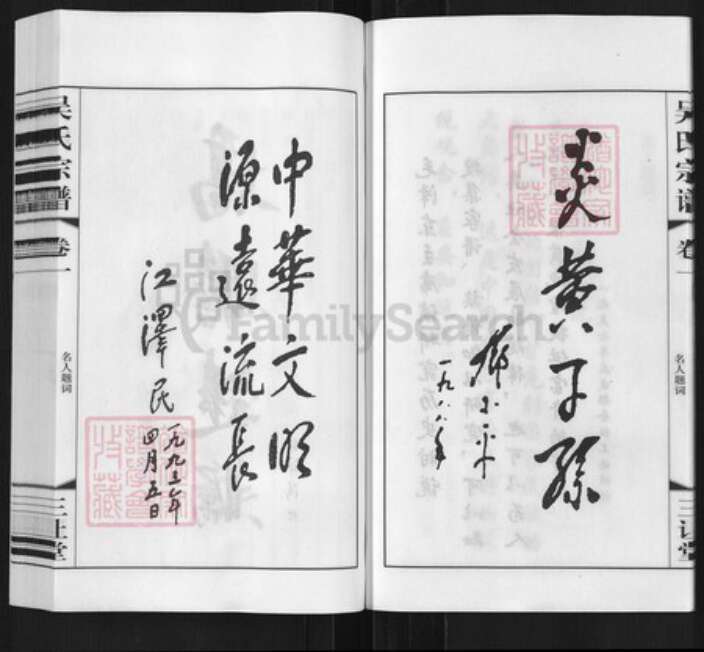 炎黄子孫
鄧小平
一九八八年
吴氏宗谱
卷一
名人题词
三让堂
中華文明
源遠流長
江澤民
一九九三年
四月五日
吴氏宗谱
卷一
名人题词
三让堂
FamilySearch